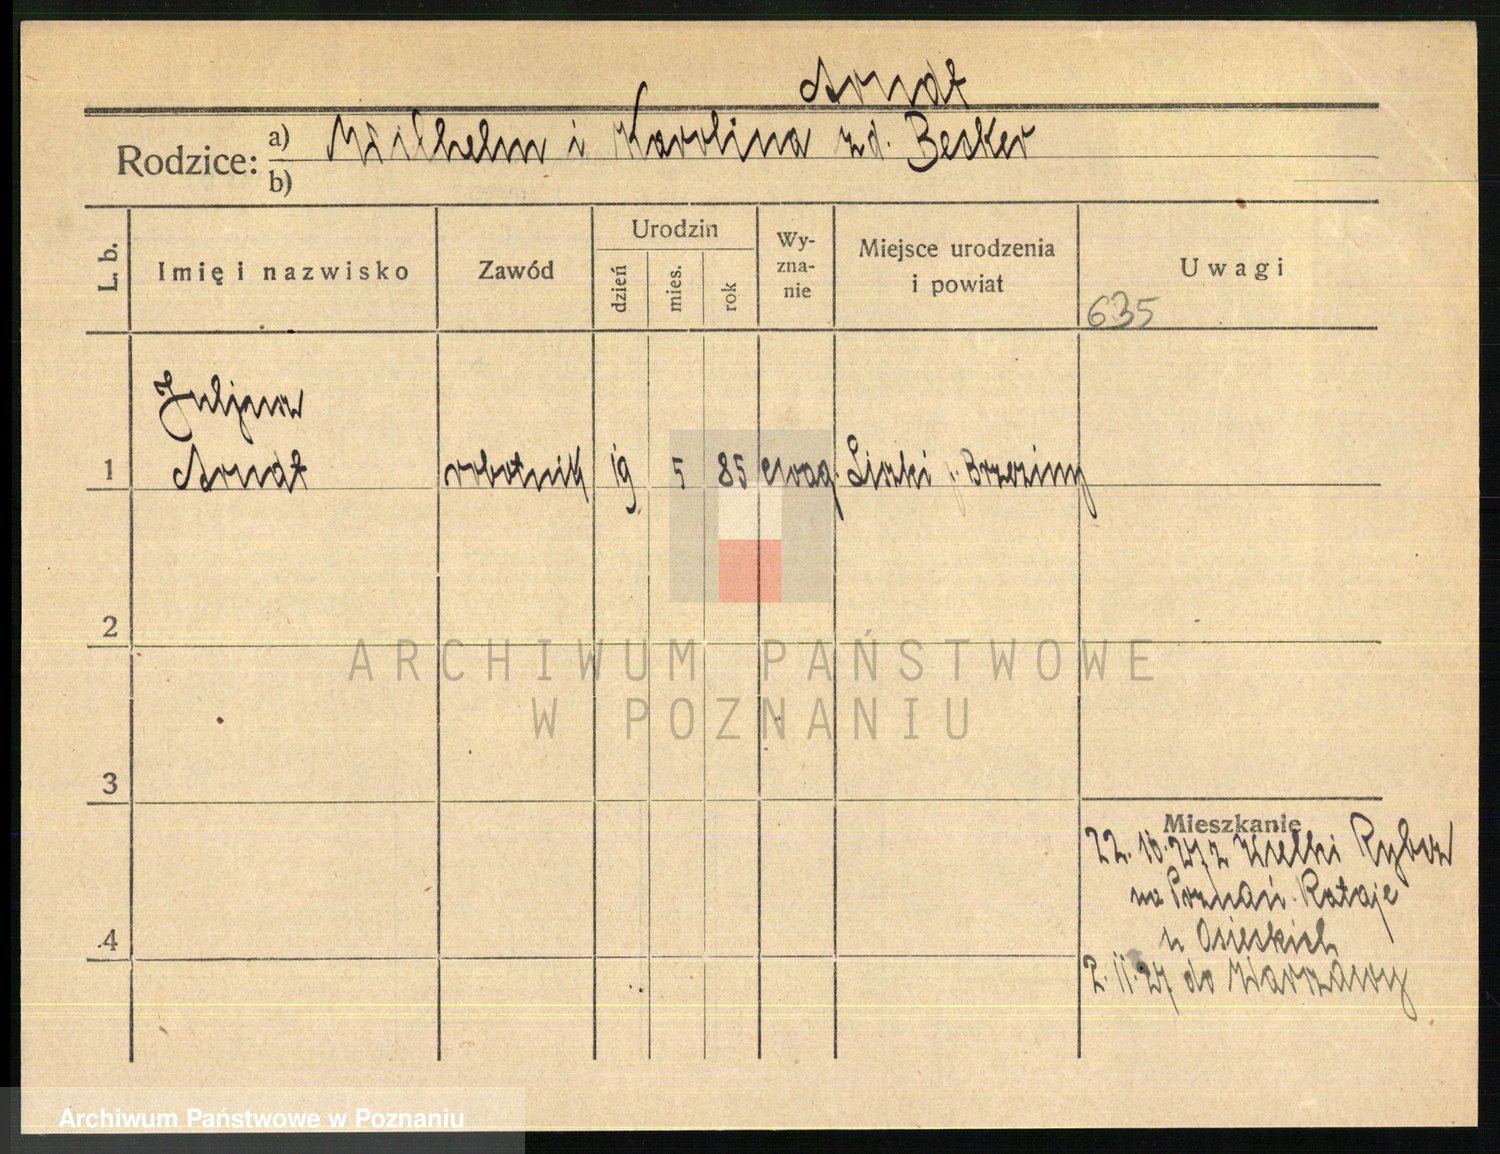 Arndt
Rodzice: a) Wilhelm i Karolina zd. Becker
b)
L. b.
Imię i nazwisko
Zawód
Urodzin
dzień
mies.
rok
Wy-
zna-
nie
Miejsce urodzenia
i powiat
Uwagi
635
Juljan
1 Arndt robotnik 19 5 85 ewag. Liszki p. Brzeziny
2
3
4
Mieszkanie
22.10.27 z Wielki Rybor
na Poznań-Rataje
u Osieckich
2.11.27 do Warszawy
ARCHIWUM PAŃSTWOWE
W POZNANIU
Archiwum Państwowe w Poznaniu